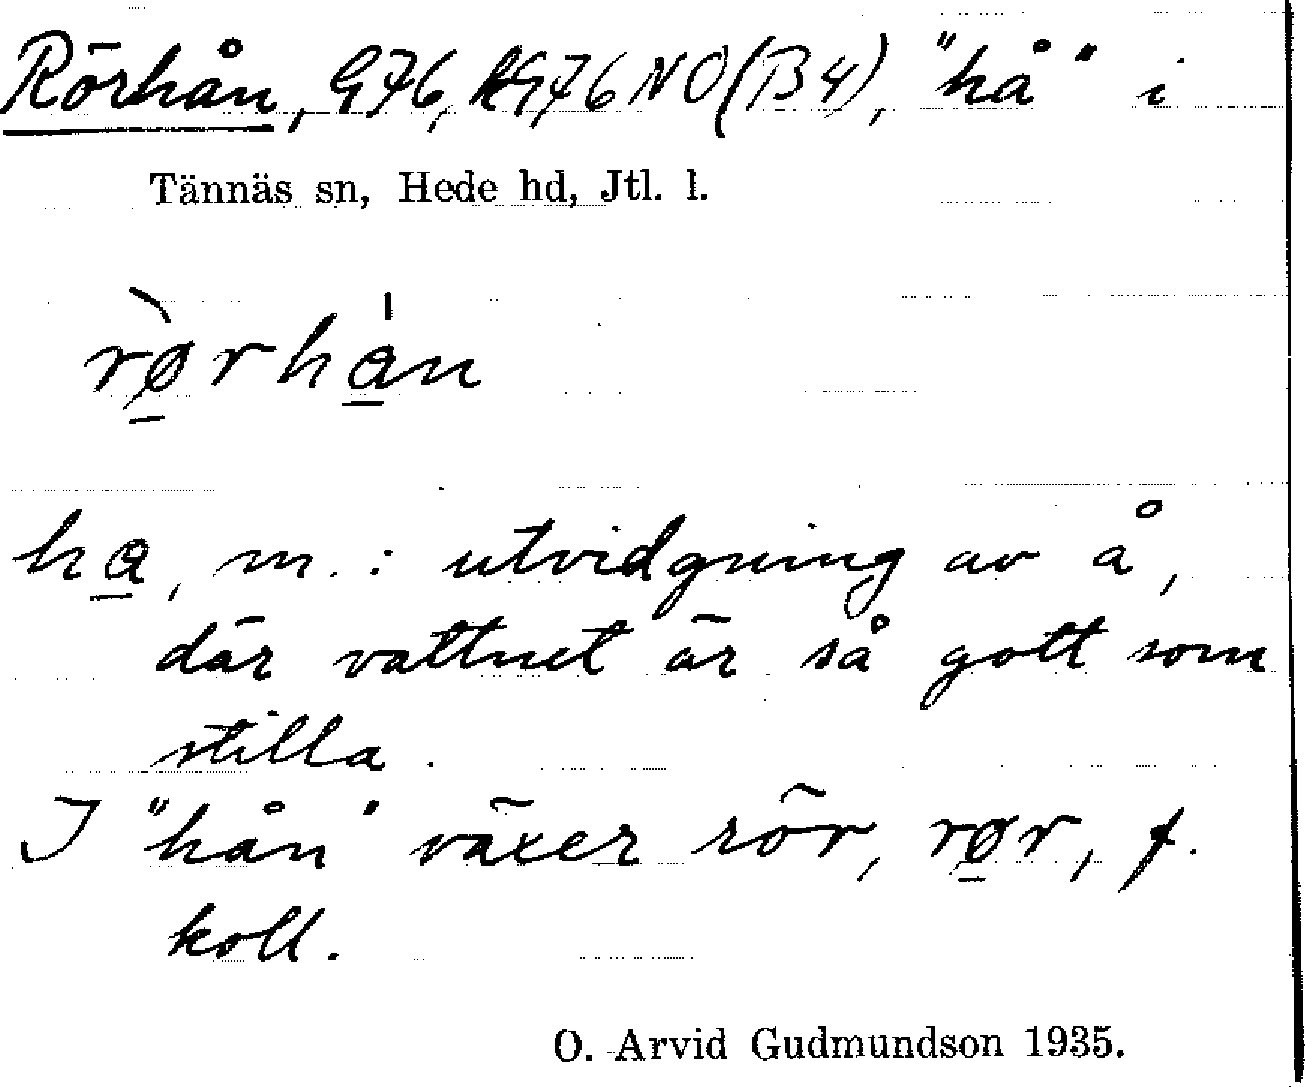 Rörhån, G76, RG76 NO (B4), "hå" i
Tännäs sn, Hede hd, Jtl. l.
rø̠̀rha̠̍n
ha̠, m. : utvidgning av å,
där vattnet är så gott som
stilla.
I "hån" växer rör, rø̠r, f.
koll.
O. Arvid Gudmundson 1935.